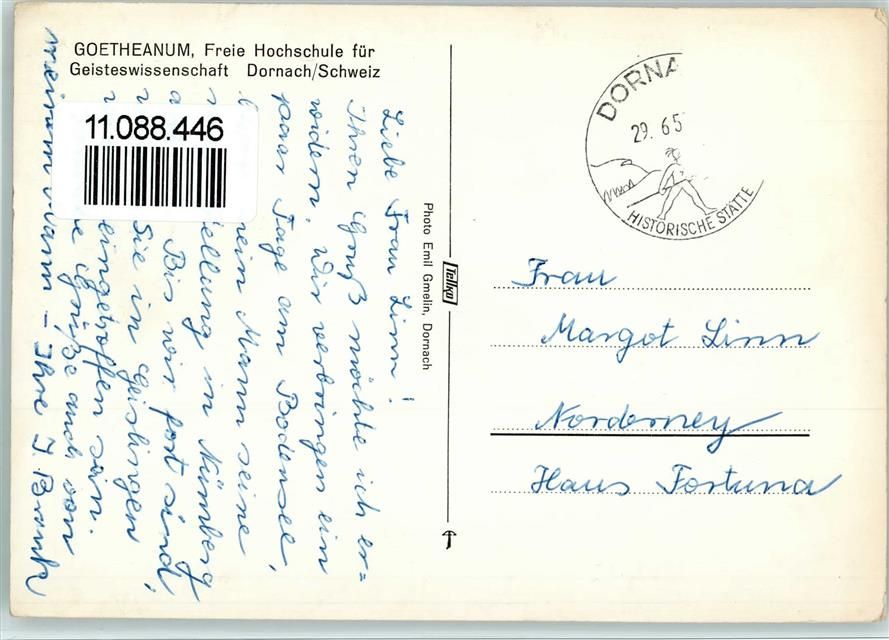 GOETHEANUM, Freie Hochschule für
Geisteswissenschaft Dornach/Schweiz
11.088.446
Liebe Frau Linn!
Ihren Gruß möchte ich er=
widern. Wir verbringen ein
paar Tage am Bodensee,
mein Mann seine
ellung in Nürnberg
Bis wir fort sind,
Sie in Geislingen
eingetroffen sein.
Grüße auch von
meinem Mann – Ihre J.
Photo Emil Gmelin, Dornach
Tellko
DORNA
29. 6 5
HISTORISCHE STÄTTE
Frau
Margot Linn
Norderney
Haus Fortuna